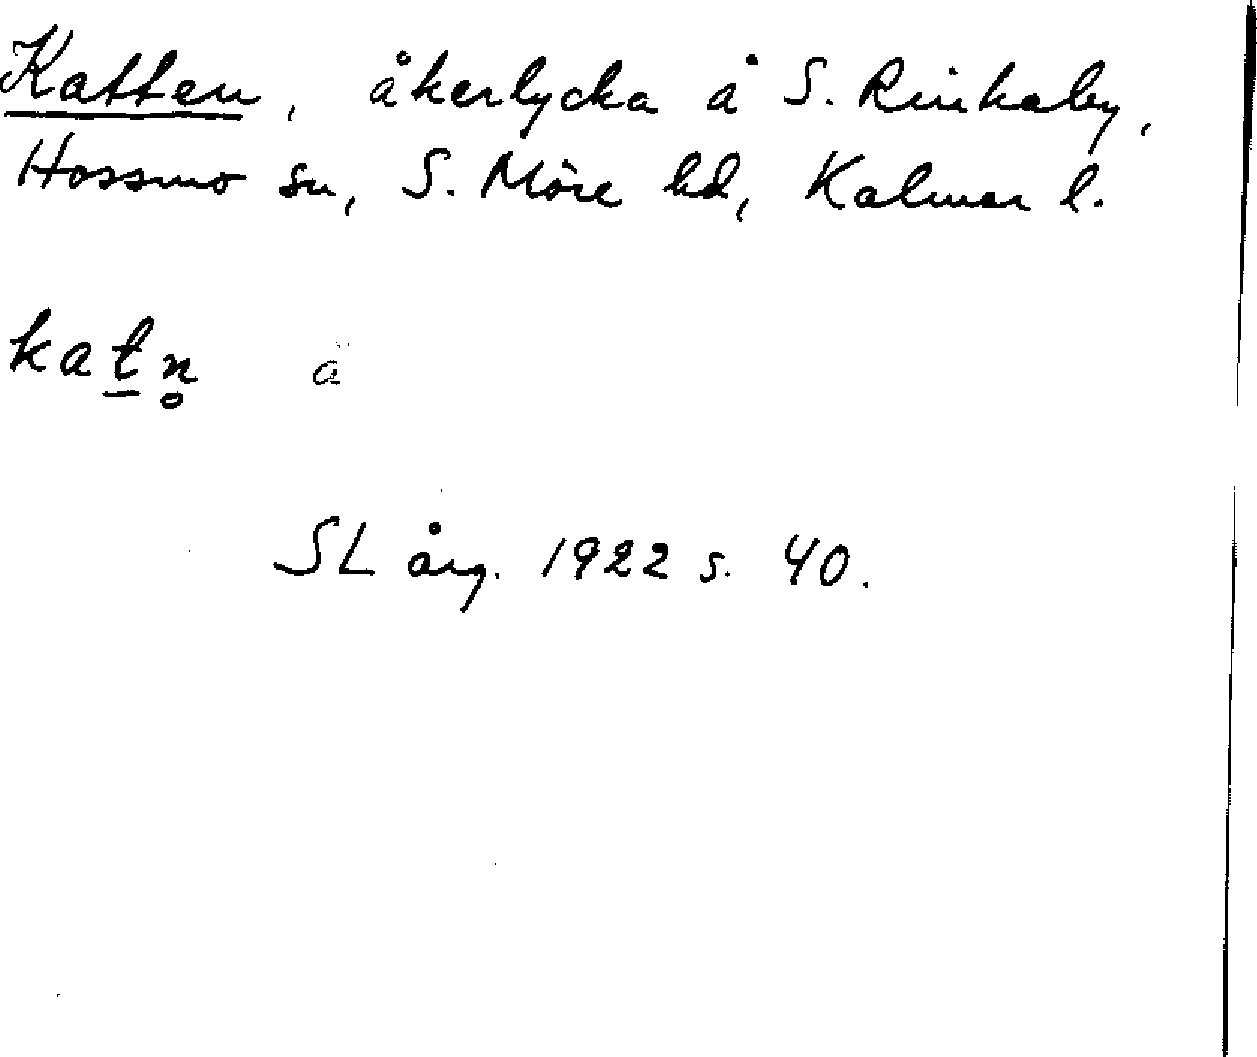 Katten, åkerlycka å S. Rinkaby,
Hossmo sn, S. Möre hd, Kalmar l.
kat̲n̥ ä
SL årg. 1922 s. 40.